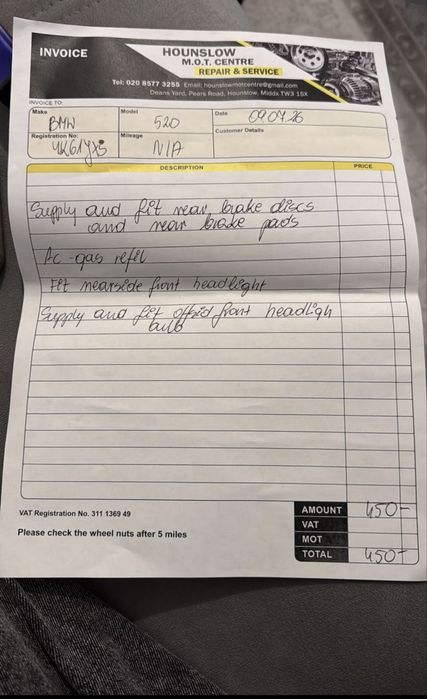 INVOICE
HOUNSLOW
M.O.T. CENTRE
REPAIR & SERVICE
Tel: 020 8577 3255 Email: hounslowmotcentre@gmail.com
Deans Yard, Pears Road, Hounslow, Middx TW3 1SX
INVOICE TO:
Make BMW
Model 520
Date
Registration No:
Mileage N/A
Customer Details
DESCRIPTION PRICE
Supply and fit rear brake discs
and rear brake pads
Ac-gas refil
Fit nearside front headlight
Supply and fit offsid front headligh
bulb
VAT Registration No. 311 1369 49
Please check the wheel nuts after 5 miles
AMOUNT 450-
VAT
MOT
TOTAL 450-